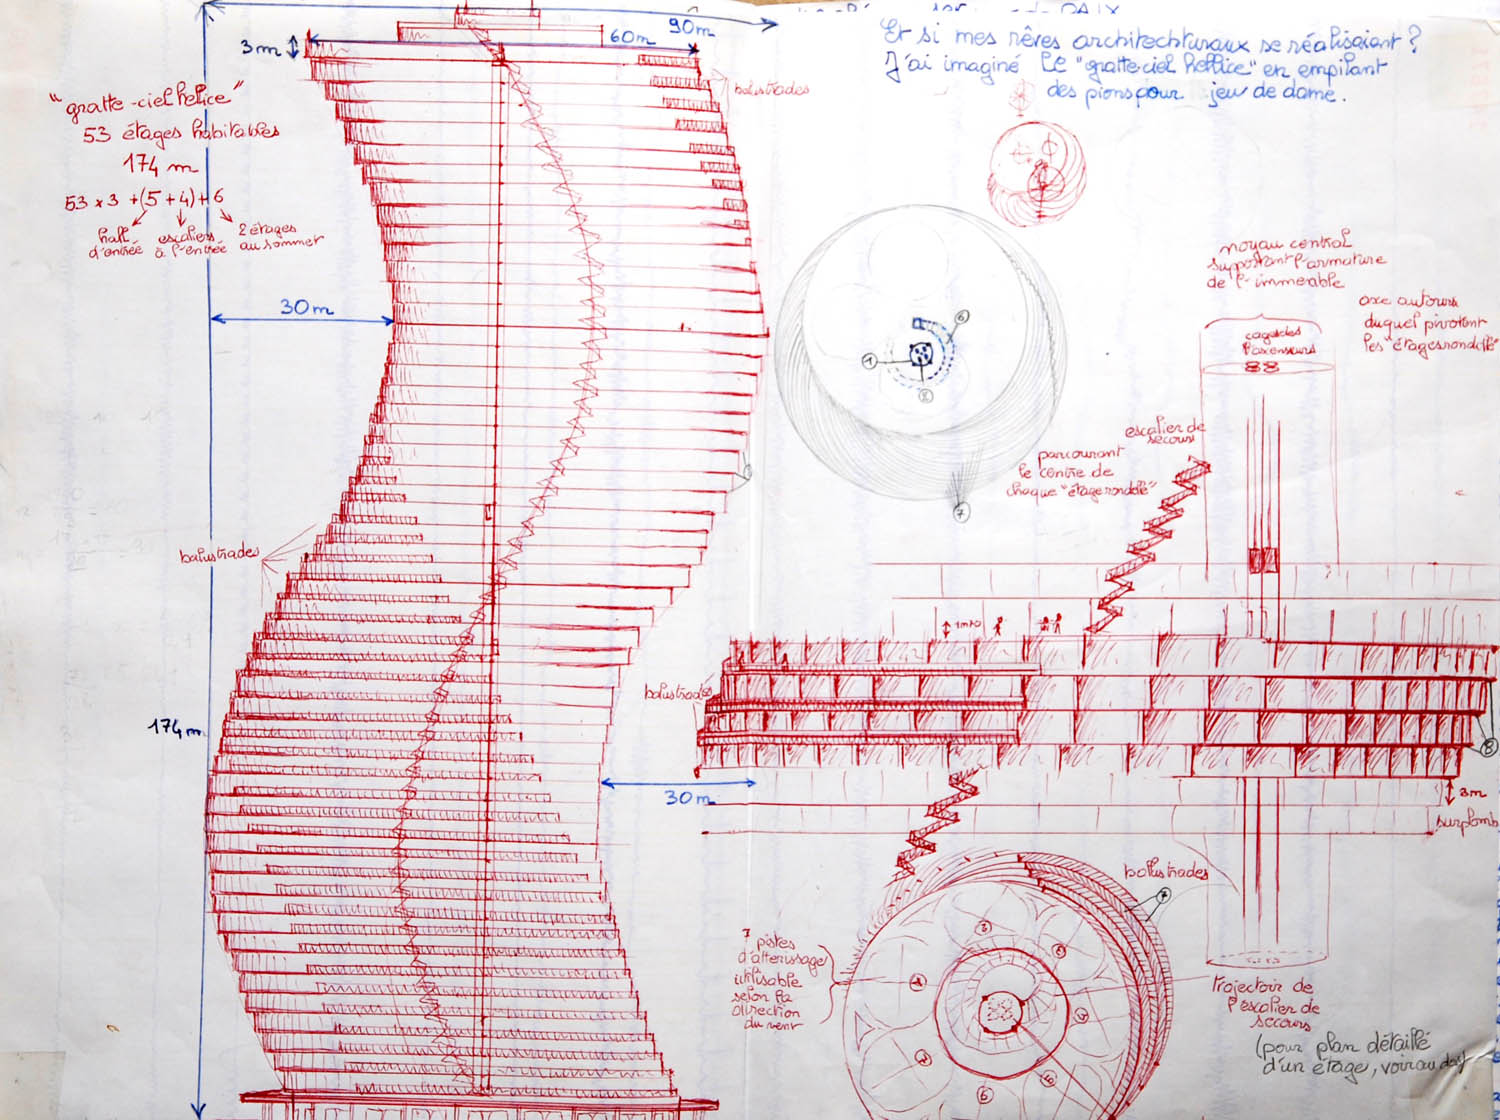 90m
60m
3m
Et si mes rêves architechturaux se réalisaient ?
J'ai imaginé le "gratte-ciel hellice" en empilant
des pions pour jeu de dame.
"gratte-ciel helice"
53 étages habitables
174 m
53 x 3 + (5 + 4) + 6
hall
d'entrée
escaliers
à l'entrée
2 étages
au sommet
balustrades
30m
noyau central
supportant l'armature
de l'immeuble
axe autours
duquel pivotent
les "étages rondelle"
cages des
ascenseurs
6
1
8
7
escalier de
secours
parcourant
le centre de
chaque "étage rondelle"
balustrades
1m70
balustrades
174 m
30 m
8
3m
surplomb
balustrades
7
7 pistes
d'atterissage
utilisable
selon la
direction
du vent
3
trajectoir de
l'escalier de
secours
(pour plan détaillé
d'un étage, voir au dos)